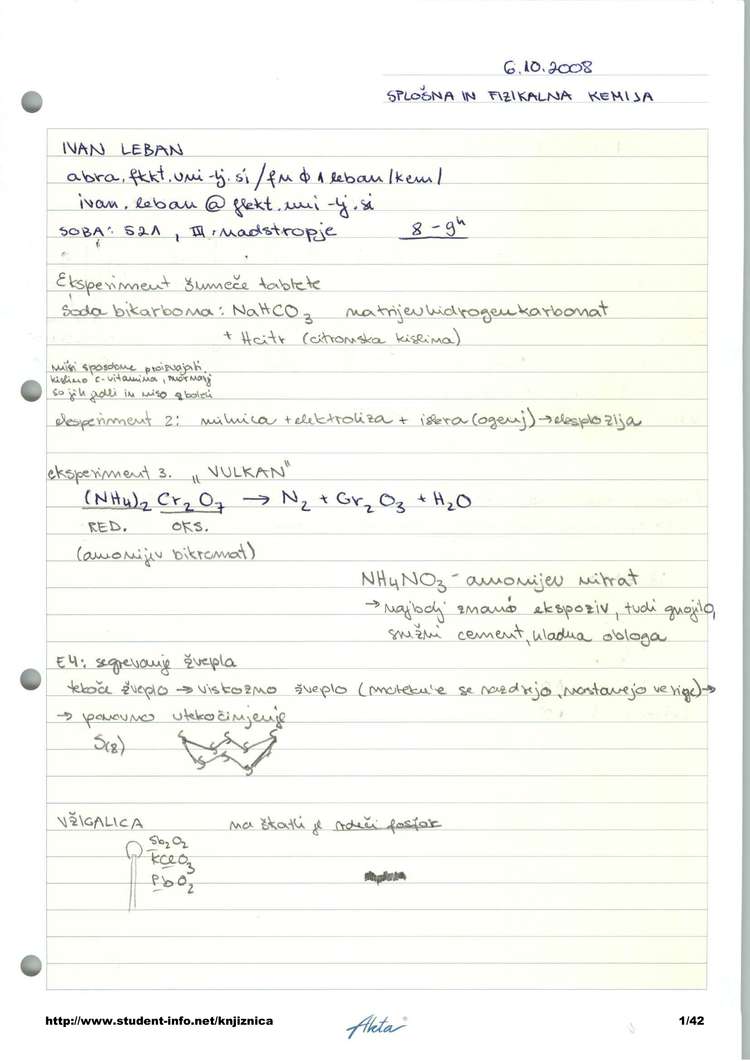 6.10.2008
SPLOŠNA IN FIZIKALNA KEMIJA
IVAN LEBAN
abra.fkkt.uni-lj.si/fmϕ1leban/kem/
ivan.leban@fkkt.uni-lj.si
SOBA: 521, III. nadstropje 8-9h
Eksperiment šumeče tablete
Soda bikarbona: NaHCO3 natrijev hidrogenkarbonat
+ Hcitr (citronska kislina)
miši sposobne proizvajati
kislino C-vitamina, mornarji
so jih jedli in niso zboleli
eksperiment 2: milnica + elektroliza + iskra (ogenj) → eksplozija
eksperiment 3. „VULKAN"
(NH4)2 Cr2O7 → N2 + Cr2O3 + H2O
RED. OKS.
(amonijev bikromat)
NH4NO3 - amonijev nitrat
→ najbolj znano ekspoziv, tudi gnojilo,
snežni cement, hladna obloga
E4: segrevanje žvepla
tekoče žveplo → viskozno žveplo (molekule se razdrejo, nastanejo verige) →
→ ponovno utekočinjenje
S(8)
S S S S S S S S
VŽIGALICA na škatli je rdeči fosfor
Sb2O2
KClO3
PbO2
http://www.student-info.net/knjiznica
Aleta
1/42